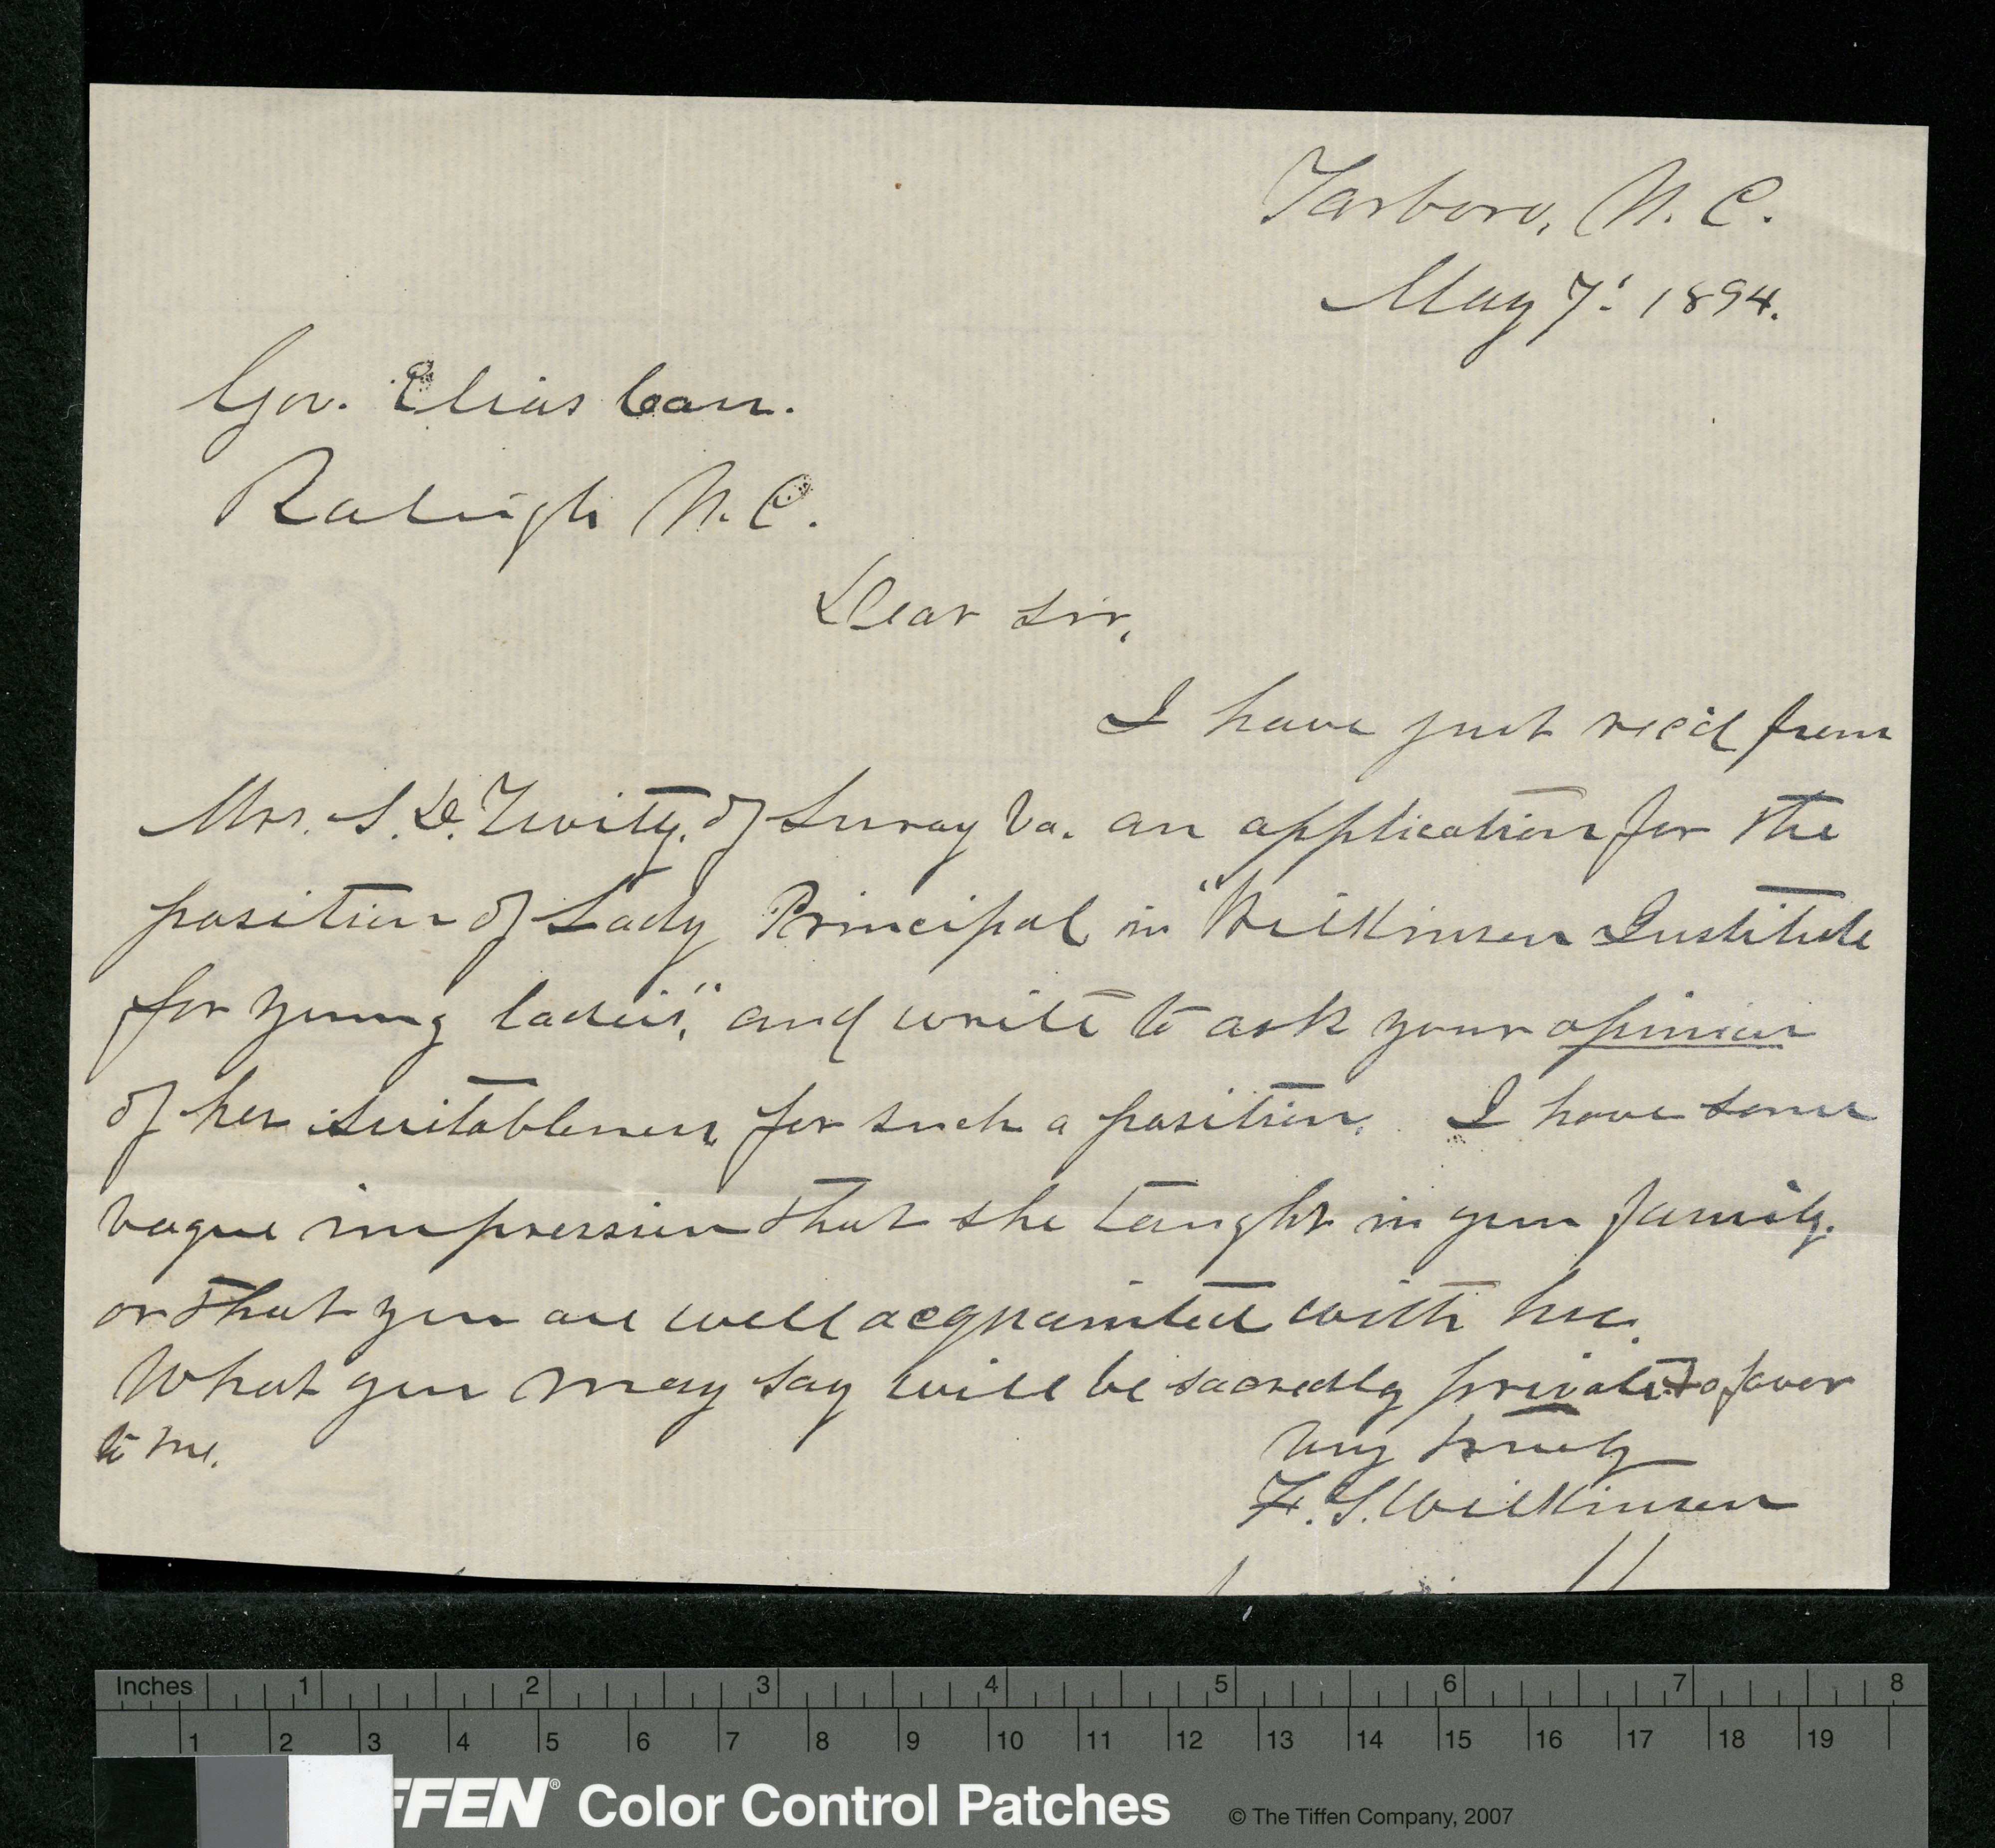 Tarboro, N. C.
May 7' 1894.
Gov. Elias Carr.
Raleigh N. C.
Dear Sir,
I have just rec'd from
Mrs. S. D. Twitty, of Luray Va. an application for the
position of Lady Principal in "Wilkinson Institute
for young ladies", and write to ask your opinion
of her suitableness for such a position. I have some
vague impression that she taught in your family.
or that you are well acquainted with her.
What you may say will be sacredly private & a favor
to me.
Very truly
F. S. Wilkinson
Inches 1 2 3 4 5 6 7 8
1 2 3 4 5 6 7 8 9 10 11 12 13 14 15 16 17 18 19
FFEN® Color Control Patches © The Tiffen Company, 2007